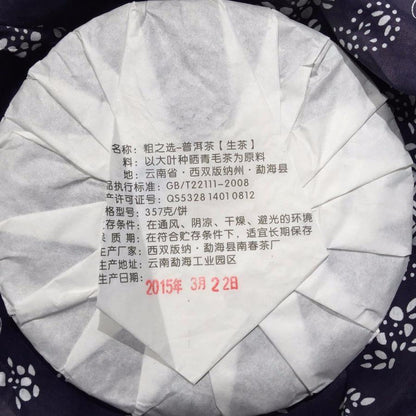 名称：粗之选-普洱茶【生茶】
料：以大叶种晒青毛茶为原料
地：云南省·西双版纳州·勐海县
品执行标准：GB/T22111-2008
产许可证号：QS532814010812
格型号：357克/饼
贮存条件：在通风、阴凉、干燥、避光的环境
保质期：在符合贮存条件下，适宜长期保存
生产厂家：西双版纳·勐海县南春茶厂
生产地址：云南勐海工业园区
生产日期：
2015年 3月 22日